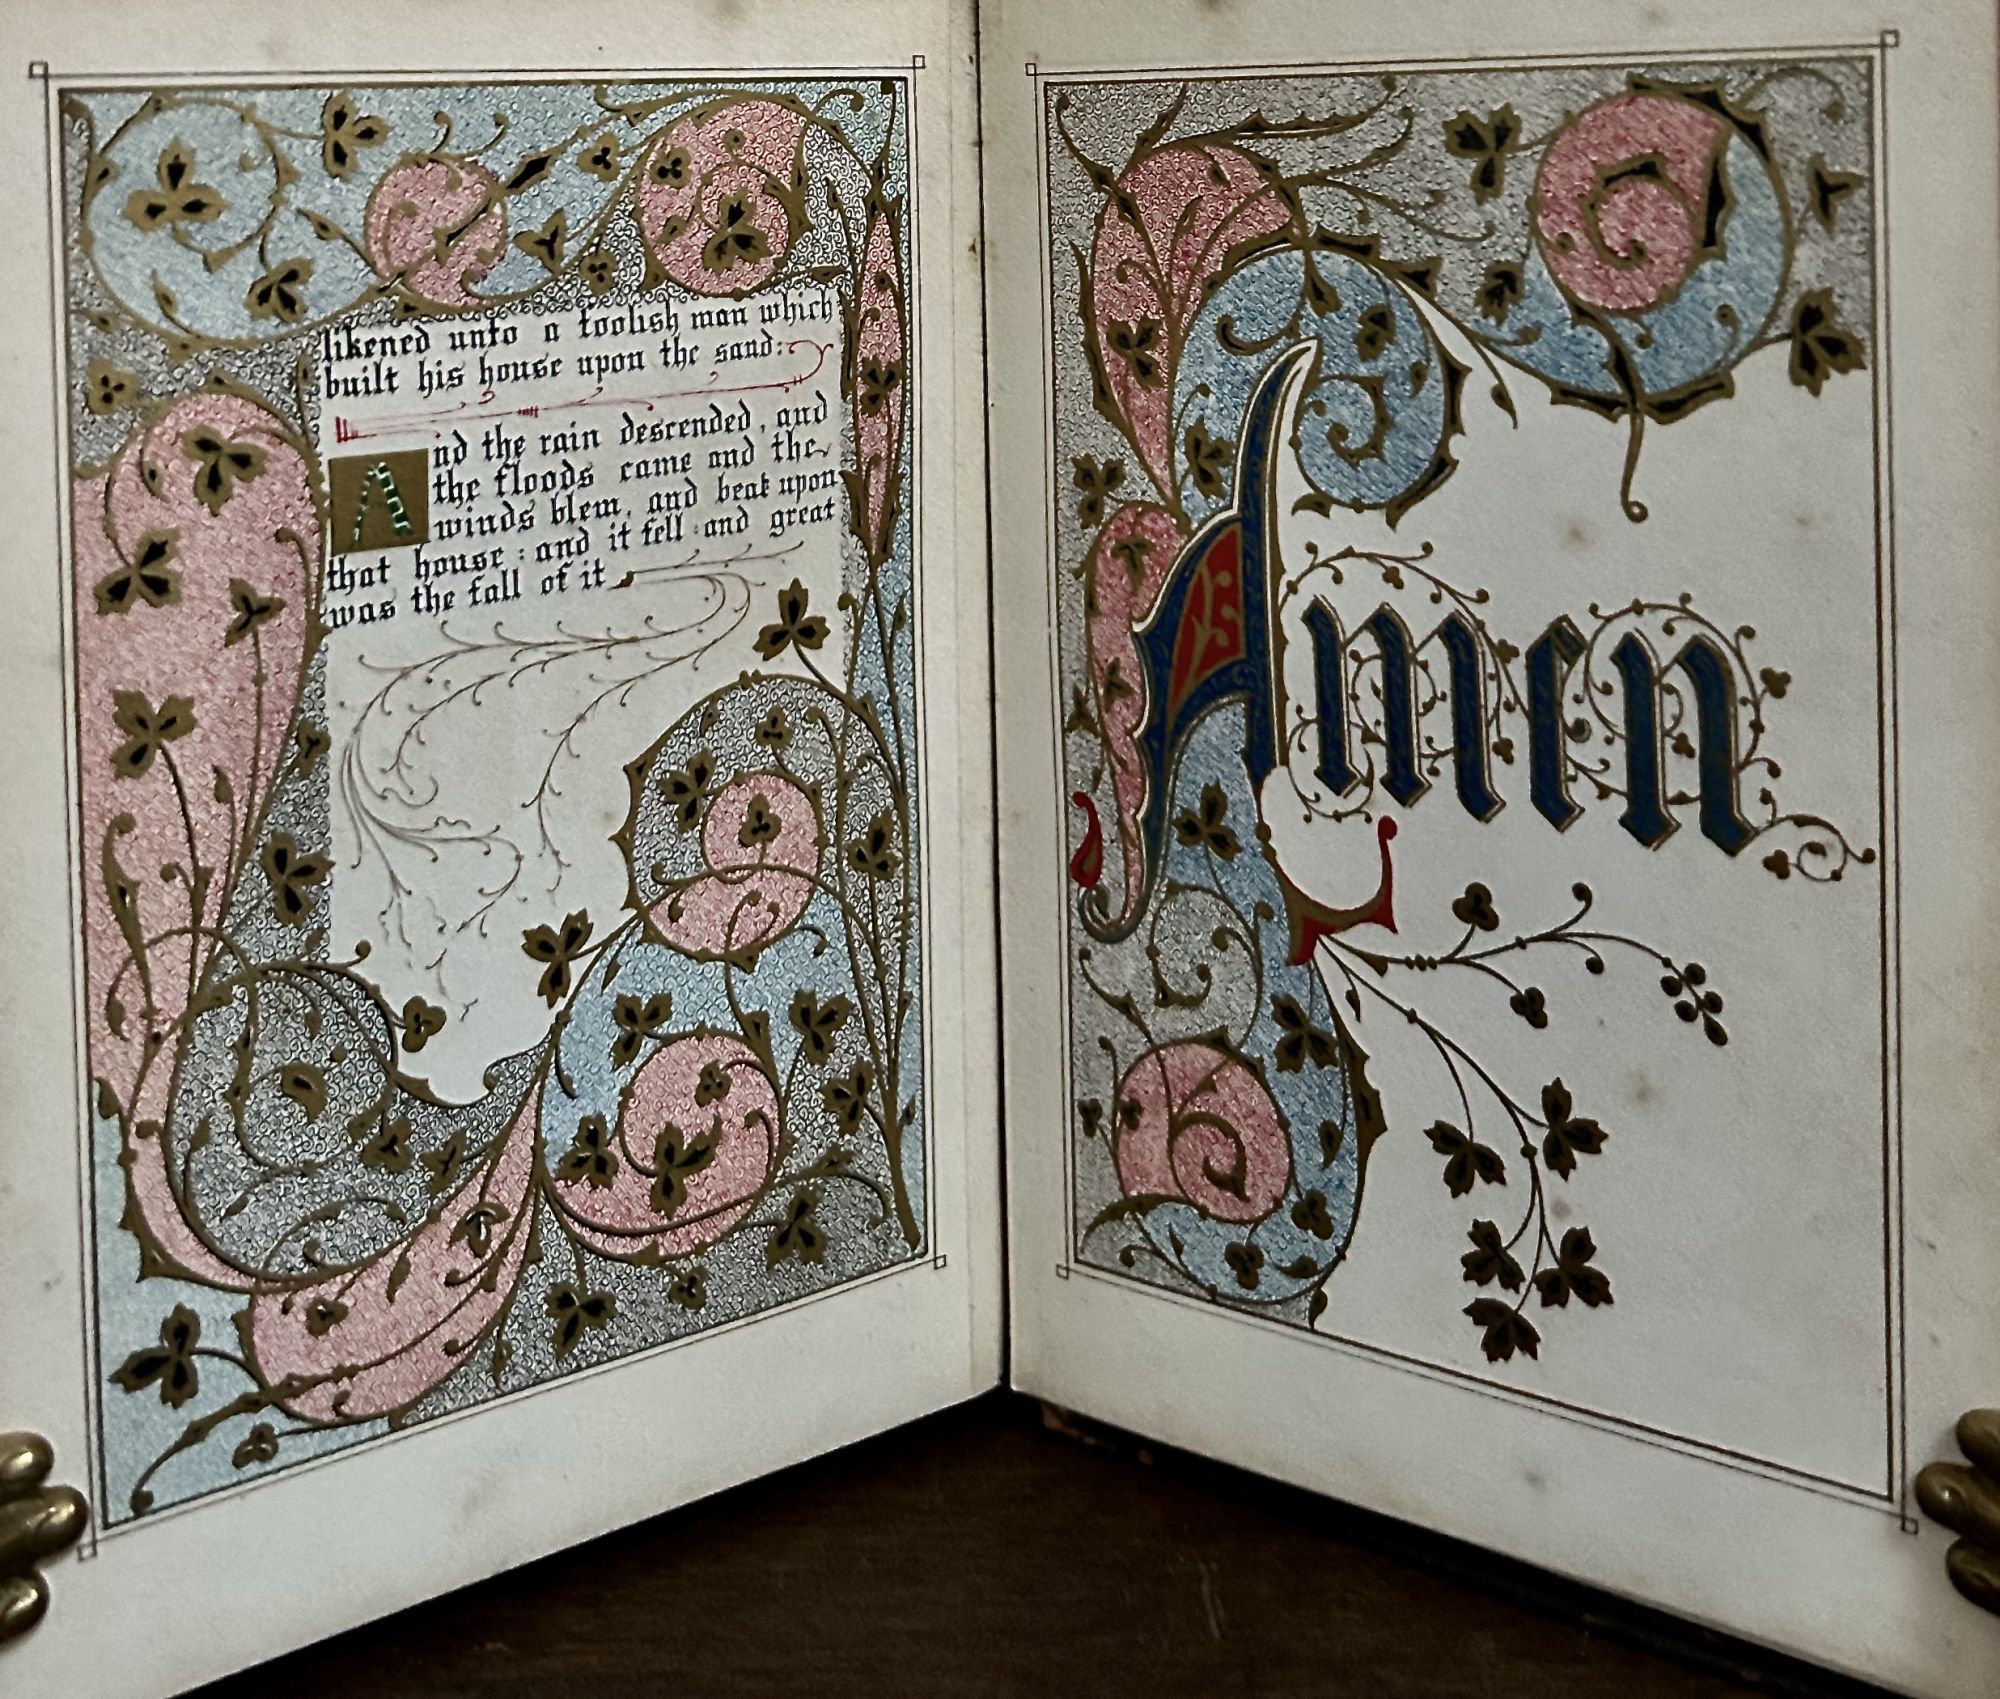 likened unto a foolish man which
built his house upon the sand:
And the rain descended, and
the floods came and the
winds blew, and beat upon
that house : and it fell : and great
was the fall of it
Amen